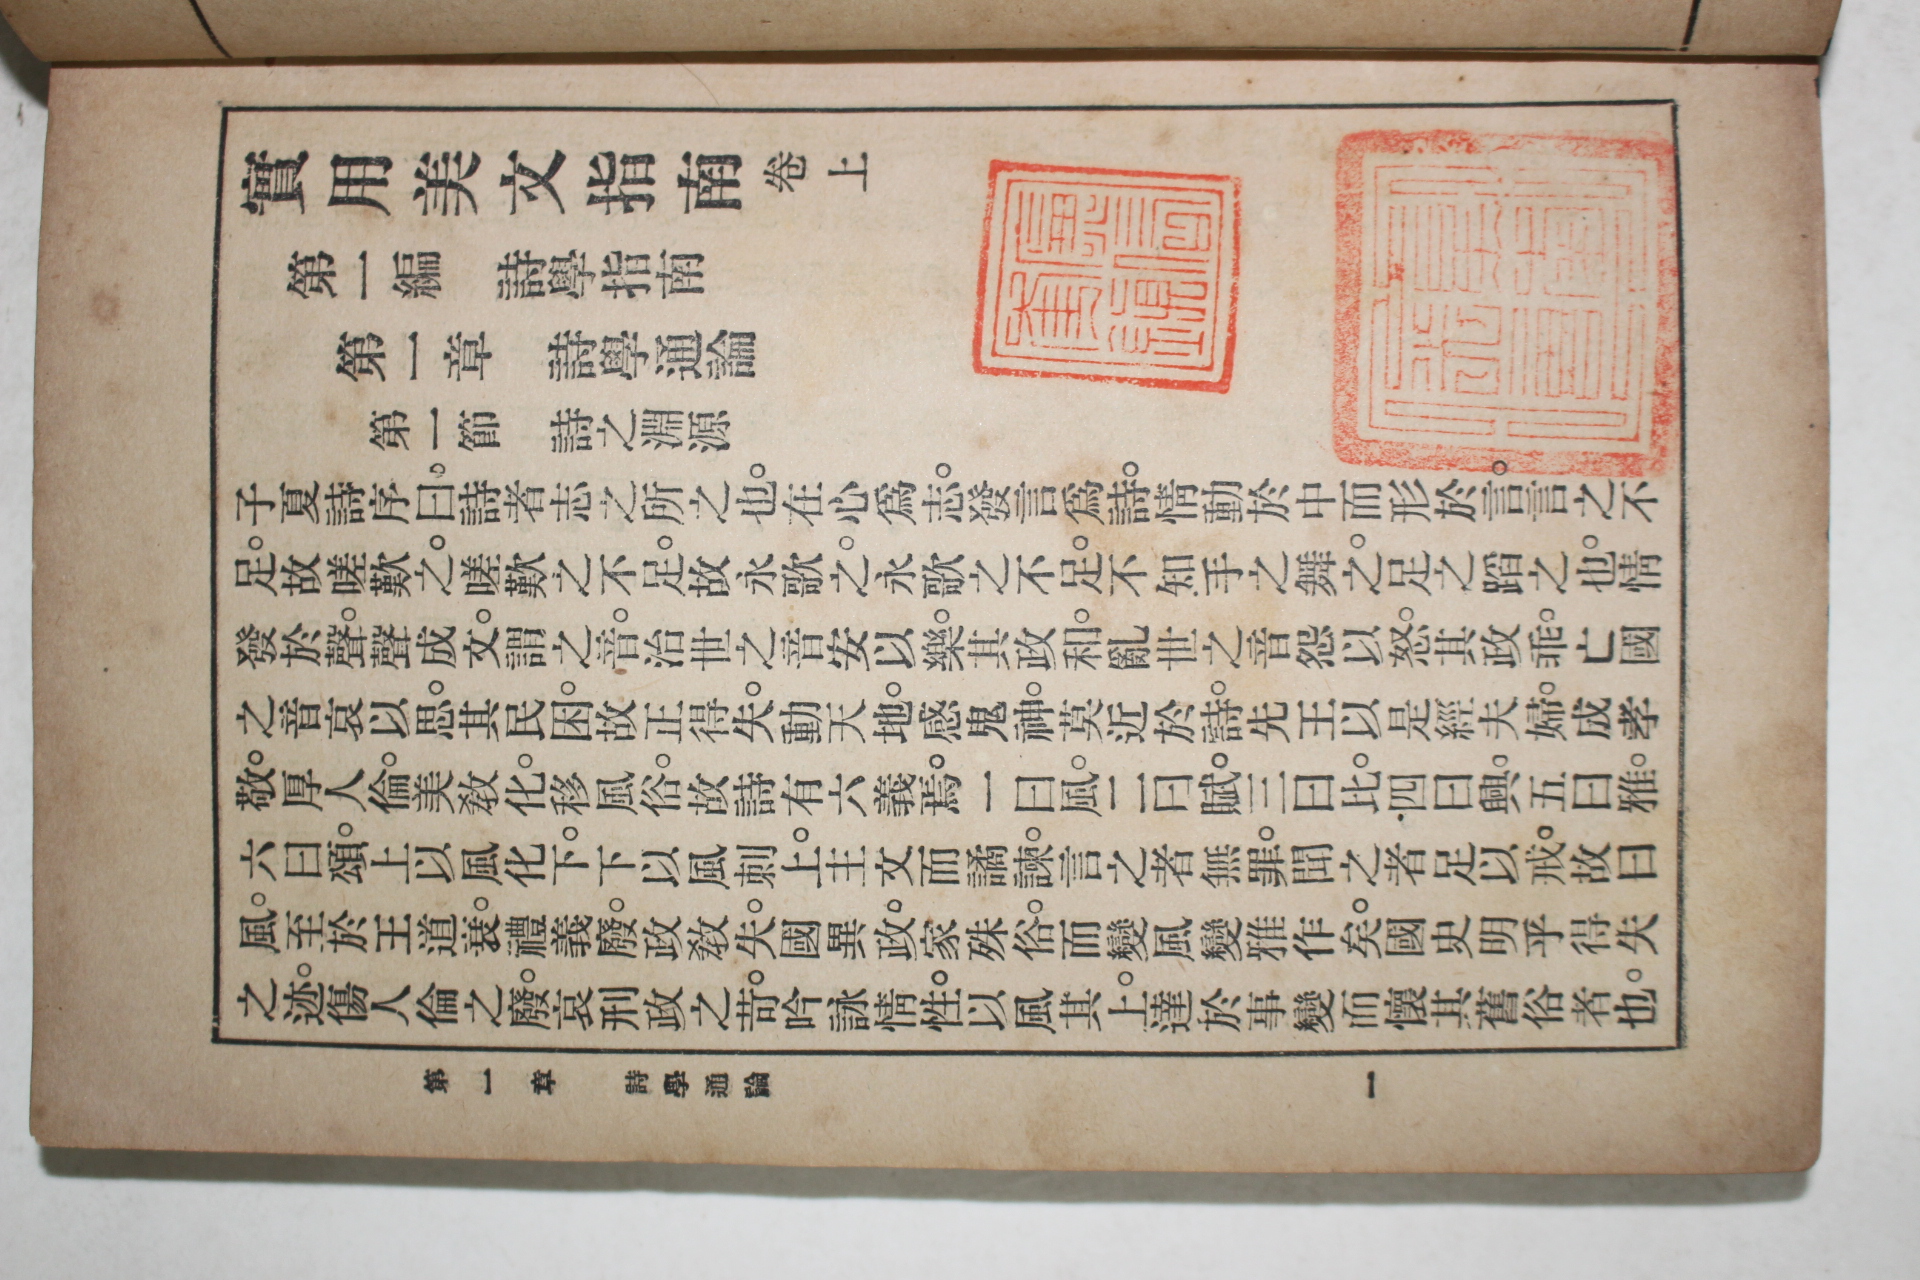 實用美文指南卷上
第一編　詩學指南
第一章　詩學通論
第一節　詩之淵源
子夏詩序曰。詩者志之所之也。在心爲志。發言爲詩。情動於中而形於言。言之不
足。故嗟歎之。嗟歎之不足。故永歌之。永歌之不足。不知手之舞之。足之蹈之也。情
發於聲。聲成文。謂之音。治世之音安以樂。其政和。亂世之音怨以怒。其政乖。亡國
之音哀以思。其民困。故正得失。動天地。感鬼神。莫近於詩。先王以是經夫婦。成孝
敬。厚人倫。美敎化。移風俗。故詩有六義焉。一曰風。二曰賦。三曰比。四曰興。五曰雅。
六曰頌。上以風化下。下以風刺上。主文而譎諫。言之者無罪。聞之者足以戒。故曰
風。至於王道衰。禮義廢。政敎失。國異政。家殊俗。而變風變雅作矣。國史明乎得失
之迹。傷人倫之廢。哀刑政之苛。吟詠情性。以風其上。達於事變而懷其舊俗者也。
第一章　詩學通論
一